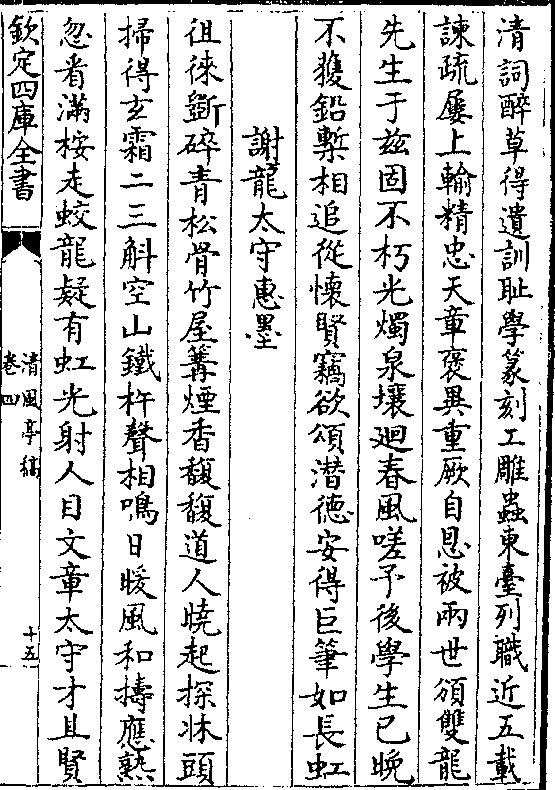 清詞醉草得遺訓耻學篆刻工雕蟲東臺列職近五載
諫疏屢上輸精忠天章褒異重厥自恩被兩世頒雙龍
先生于兹固不朽光燭泉壤廻春風嗟予後學生已晚
不獲鉛槧相追從懷賢竊欲頌潛德安得巨筆如長虹
謝龍太守惠墨
徂徠斵碎青松骨竹屋篝煙香馥馥道人曉起探牀頭
掃得玄霜二三斛空山鐵杵聲相鳴日暖風和擣應熟
忽看滿桉走蛟龍疑有虹光射人目文章太守才且賢
欽定四庫全書
清風亭稿
卷四
十五